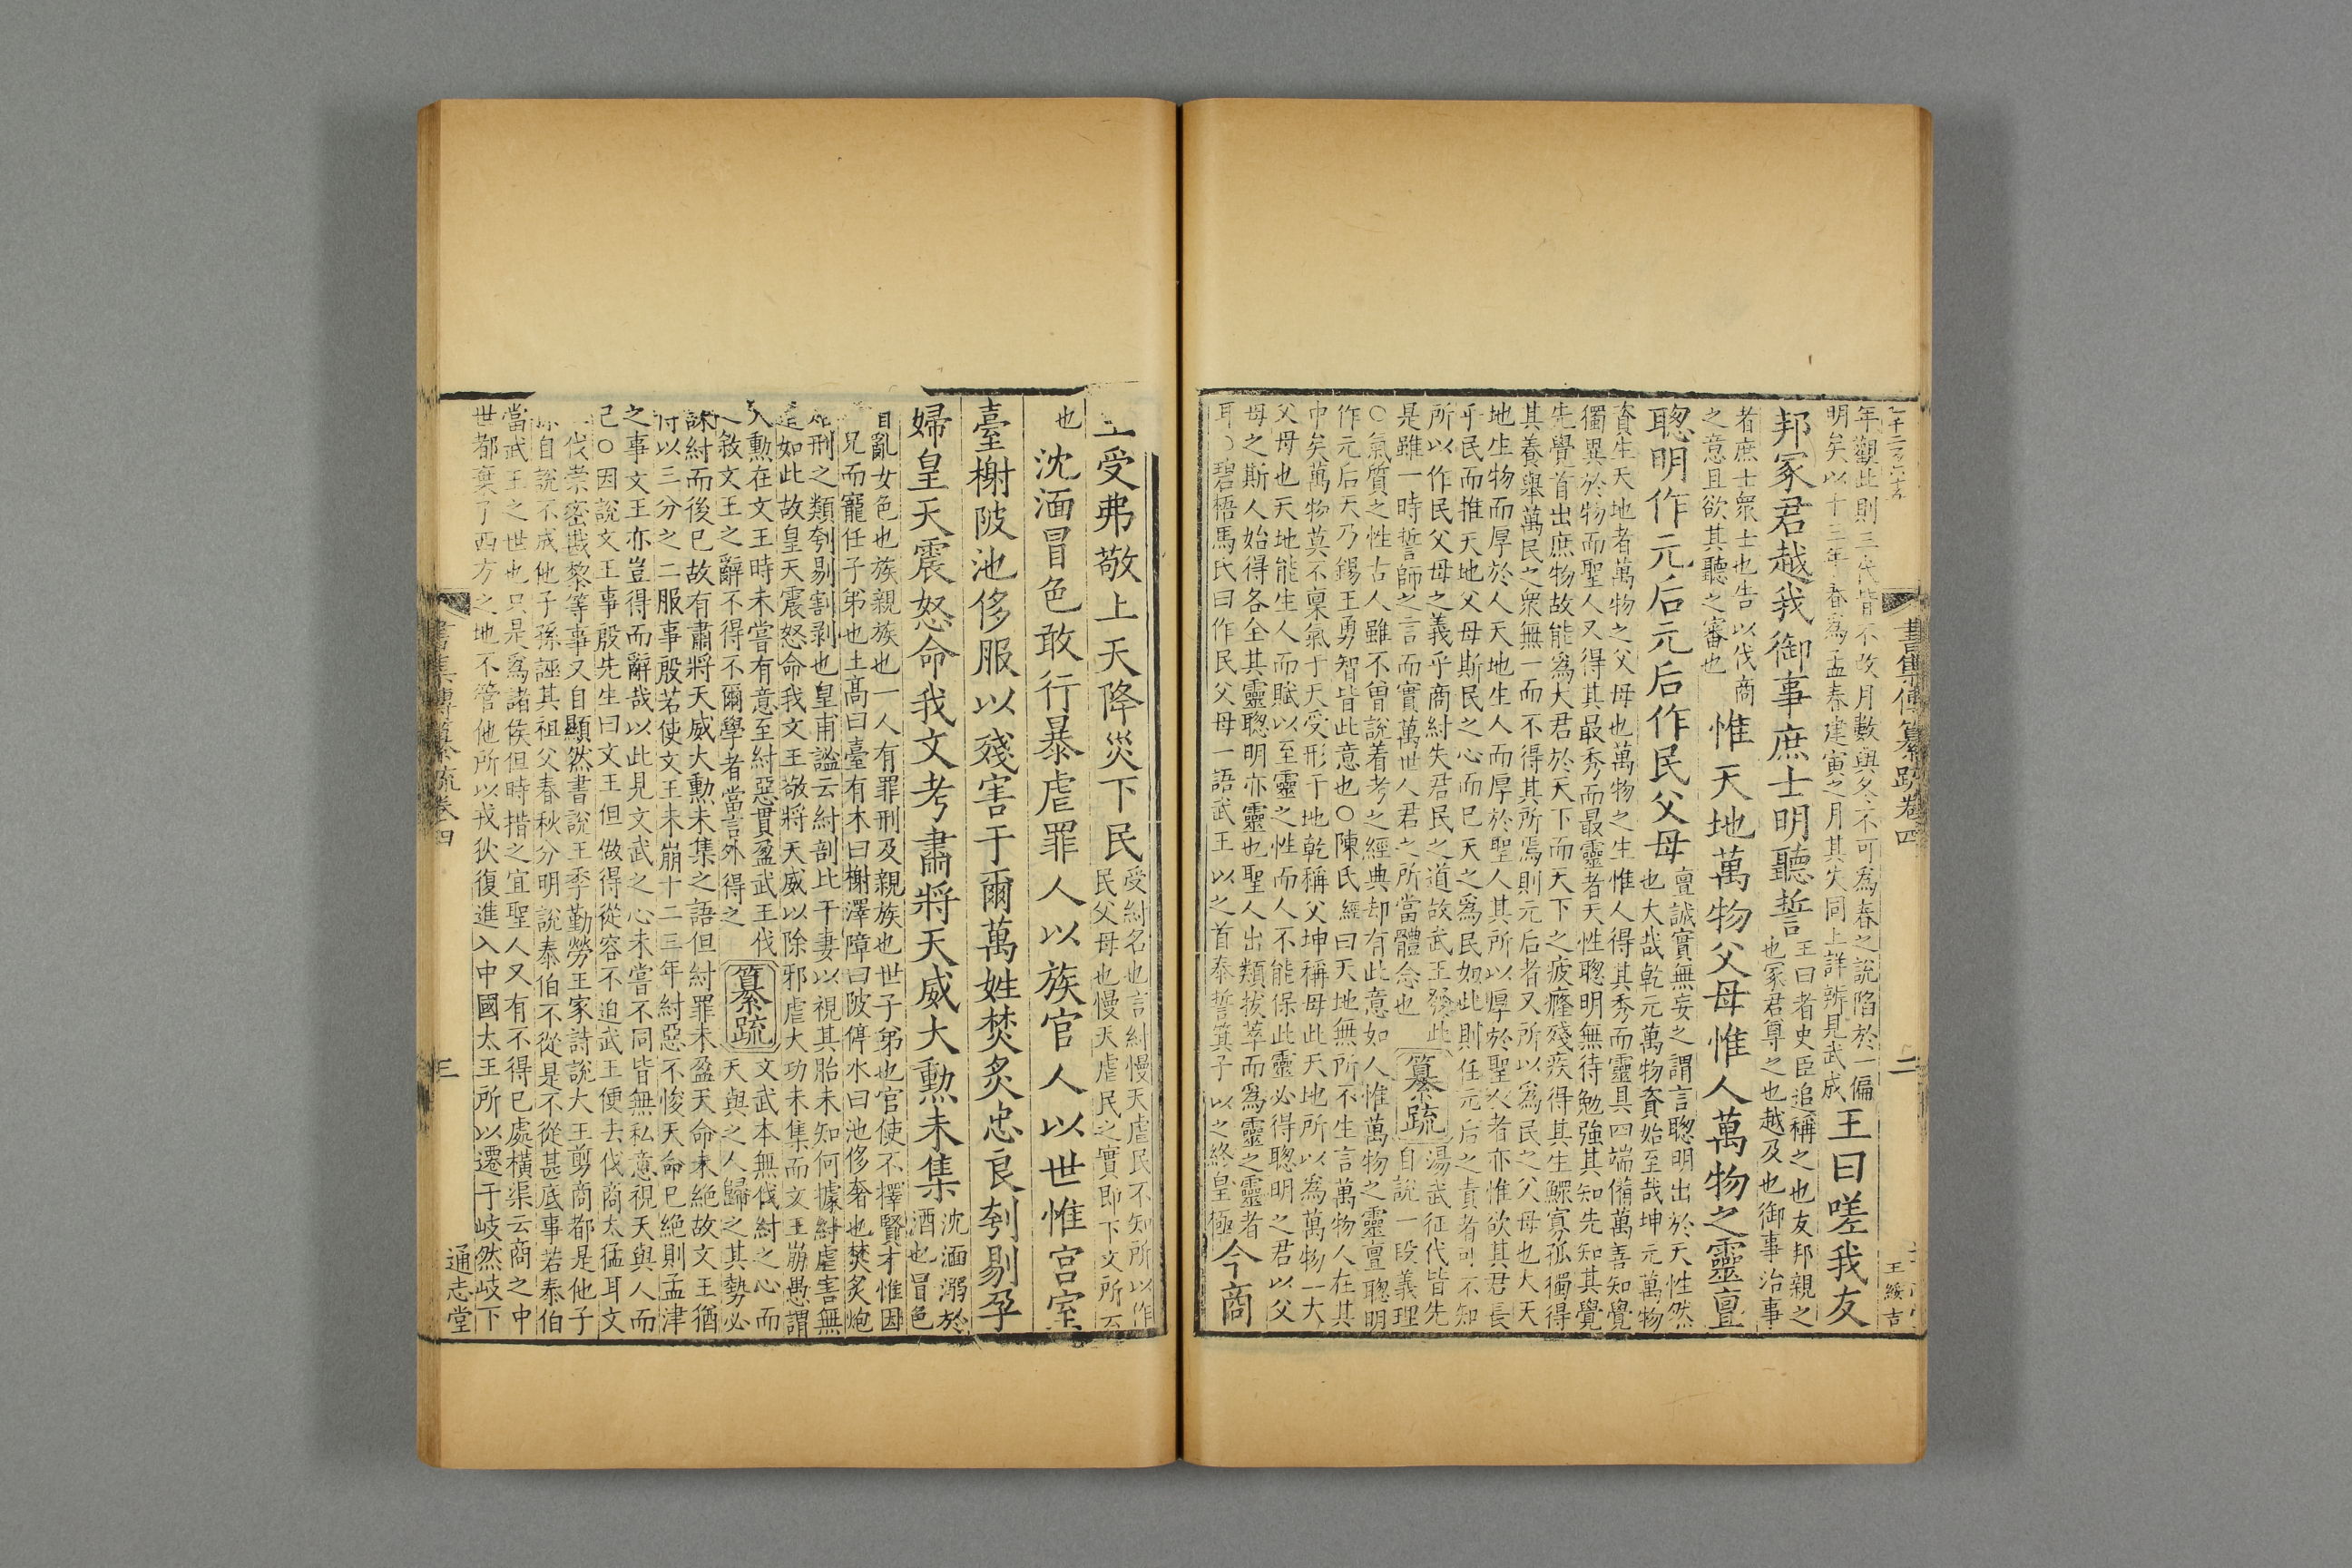 書集傳纂疏卷四
二
王綏吉
年觀此則三代皆不改月數與冬不可為春之說陷於一偏
明矣以十三年春為孟春建寅之月其失同上詳辨見武成
王曰嗟我友
邦冢君越我御事庶士明聽誓
王曰者史臣追稱之也友邦親之
也冢君尊之也越及也御事治事
者庶士衆士也告以伐商
之意且欲其聽之審也
惟天地萬物父母惟人萬物之靈亶
聰明作元后元后作民父母
亶誠實無妄之謂言聰明出於天性然
也大哉乾元萬物資始至哉坤元萬物
資生天地者萬物之父母也萬物之生惟人得其秀而靈具四端備萬善知覺
獨異於物而聖人又得其最秀而最靈者天性聰明無待勉強其知先知其覺
先覺首出庶物故能為大君於天下而天下之疲癃殘疾得其生鰥寡孤獨得
其養舉萬民之衆無一而不得其所焉則元后者又所以為民之父母也大天
地生物而厚於人天地生人而厚於聖人其所以厚於聖人者亦惟欲其君長
乎民而推天地父母斯民之心而已天之為民如此則任元后之責者可不知
所以作民父母之義乎商紂失君民之道故武王發此
是雖一時誓師之言而實萬世人君之所當體念也
纂疏
湯武征代皆先
自說一段義理
○氣質之性古人雖不曾說着考之經典却有此意如人惟萬物之靈亶聰明
作元后天乃錫王勇智皆此意也○陳氏經曰天地無所不生言萬物人在其
中矣萬物莫不稟氣于天受形于地乾稱父坤稱母此天地所以為萬物一大
父母也天地能生人而賦以至靈之性而人不能保此靈必得聰明之君以父
母之斯人始得各全其靈聰明亦靈也聖人出類拔萃而為靈之靈者
耳○碧梧馬氏曰作民父母一語武王以之首泰誓箕子以之終皇極
今商
王受弗敬上天降災下民
受紂名也言紂慢天虐民不知所以作
民父母也慢天虐民之實即下文所云
也
沈湎冒色敢行暴虐罪人以族官人以世惟宮室
臺榭陂池侈服以殘害于爾萬姓焚炙忠良刳剔孕
婦皇天震怒命我文考肅將天威大勳未集
沈湎溺於
酒也冒色
冒亂女色也族親族也一人有罪刑及親族也世子弟也官使不擇賢才惟因
父兄而寵任子弟也土高曰臺有木曰榭澤障曰陂停水曰池侈奢也焚炙炮
烙刑之類刳剔割剥也皇甫謐云紂剖比干妻以視其胎未知何據紂虐害無
道如此故皇天震怒命我文王敬將天威以除邪虐大功未集而文王崩愚謂
大勳在文王時未嘗有意至紂惡貫盈武王伐
之敘文王之辭不得不爾學者當言外得之
纂疏
文武本無伐紂之心而
天與之人歸之其勢必
誅紂而後已故有肅將天威大勳未集之語但紂罪未盈天命未絶故文王猶
得以三分之二服事殷若使文王未崩十二三年紂惡不悛天命已絶則孟津
之事文王亦豈得而辭哉以此見文武之心未嘗不同皆無私意視天與人而
已○因說文王事殷先生曰文王但做得從容不迫武王便去伐商太猛耳文
王伐崇密戡黎等事又自顯然書說王季勤勞王家詩說大王剪商都是他子
孫自說不成他子孫誣其祖父春秋分明說泰伯不從是不從甚底事若泰伯
當武王之世也只是為諸侯但時措之宜聖人又有不得已處橫渠云商之中
世都棄了西方之地不管他所以戎狄復進入中國太王所以遷于岐然岐下
書集傳纂疏卷四
三
通志堂